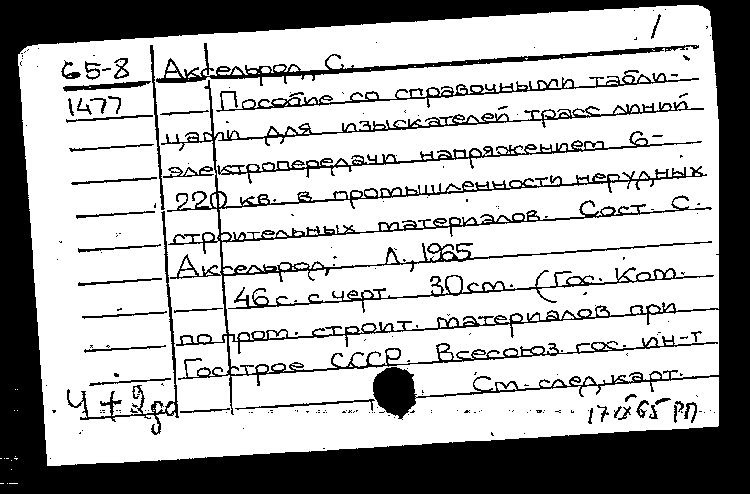 1
65-8 Аксельрод, С.
1477 Пособие со справочными табли-
цами для изыскателей трасс линий
электропередачи напряжением 6-
220 кв. в промышленности нерудных
строительных материалов. Сост. С.
Аксельрод. Л., 1965
46 с. с черт. 30 cm. (Гос. Ком.
по пром. строит. материалов при
Госстрое СССР. Всесоюз. гос. ин-т
См. след. карт.
Ч + 2до
17 IX 65 РП